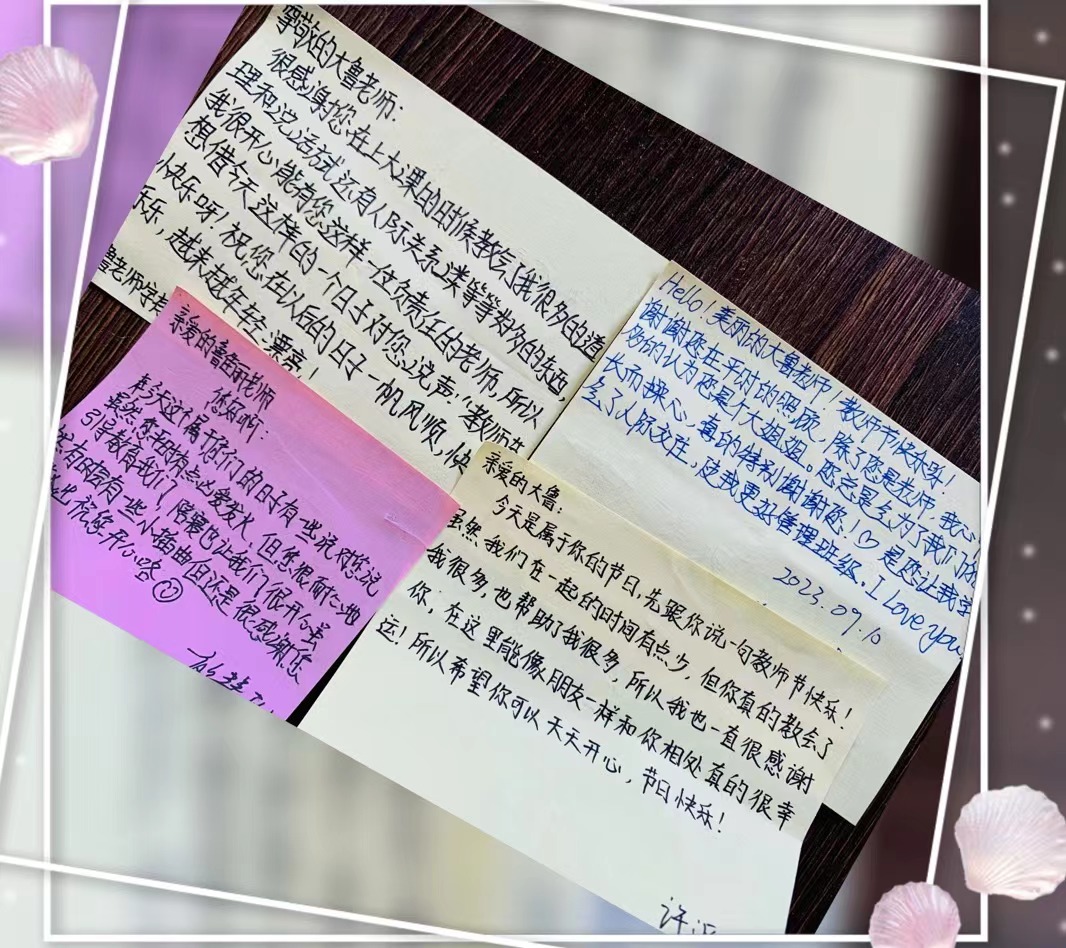 尊敬的大鲁老师：
很感谢您在上大课的时候教会了我很多的道
理和说话方式还有人际关系之类等等好多的东西
我很开心能有您这样一位负责任的老师，所以
想借今天这样的一个日子对您说声，“教师节
快乐呀！祝您在以后的日子一帆风顺，快
乐，越来越年轻漂亮！
鲁老师
Hello！美丽的大鲁老师！教师节快乐呀！
谢谢您在平时的照顾，除了您是老师，我
多的认为您是个大姐姐。您总是会为了我们的
长而操心，真的特别谢谢您！♡是您让我学
会了人际交往，使我更好管理班级。I Love you
2023.09.10
亲爱的鲁
老师
您好啊：
在今天这个属于你们的日子有一些说对您说
虽然您平时有点爱发火 但您很耐心地
引导教育我们 陪寝也让我们很开心虽
然有时固有一些小插曲但还是很感谢您
祝您开心咯
亲爱的大鲁：
今天是属于你的节日，先跟你说一句教师节快乐！
虽然我们在一起的时间有点少，但你真的教会了
我很多，也帮助了我很多，所以我也一直很感谢
你，在这里能像朋友一样和你相处真的很幸
运！所以希望你可以天天开心，节日快乐！
许